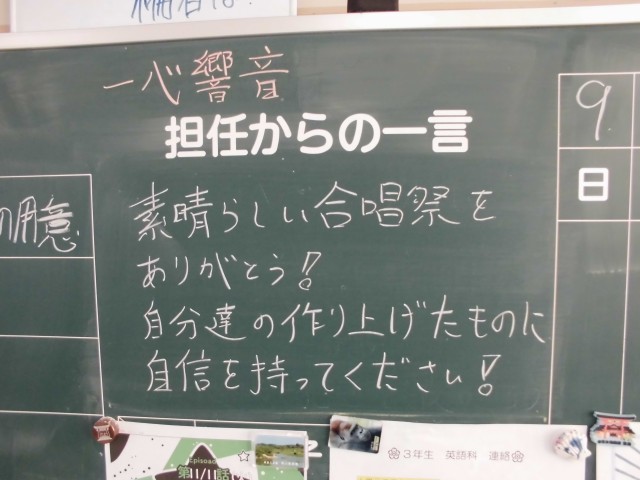 一心響音
担任からの一言
素晴らしい合唱祭を
ありがとう!
自分達の作り上げたものに
自信を持ってください!
9
日
の用意
Episode
第1/1話
❀3年生 英語科 連絡❀